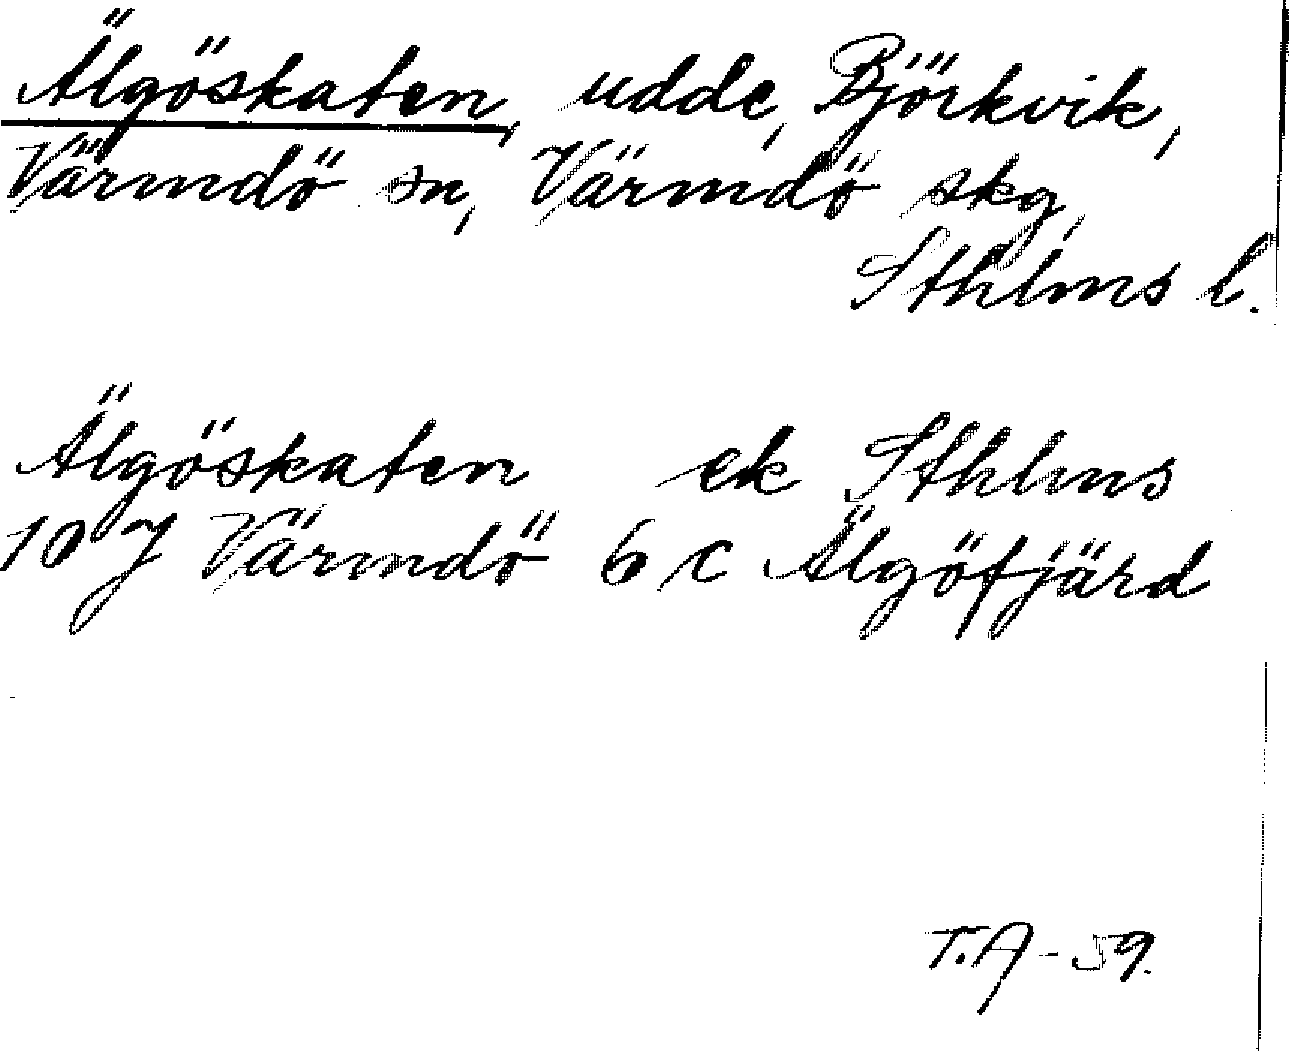 Älgöskaten, udde, Björkvik,
Värmdö sn, Värmdö skg,
Sthlms l.
Älgöskaten ek Sthlms
10 J Värmdö 6 c Älgöfjärd
T.A - 59.